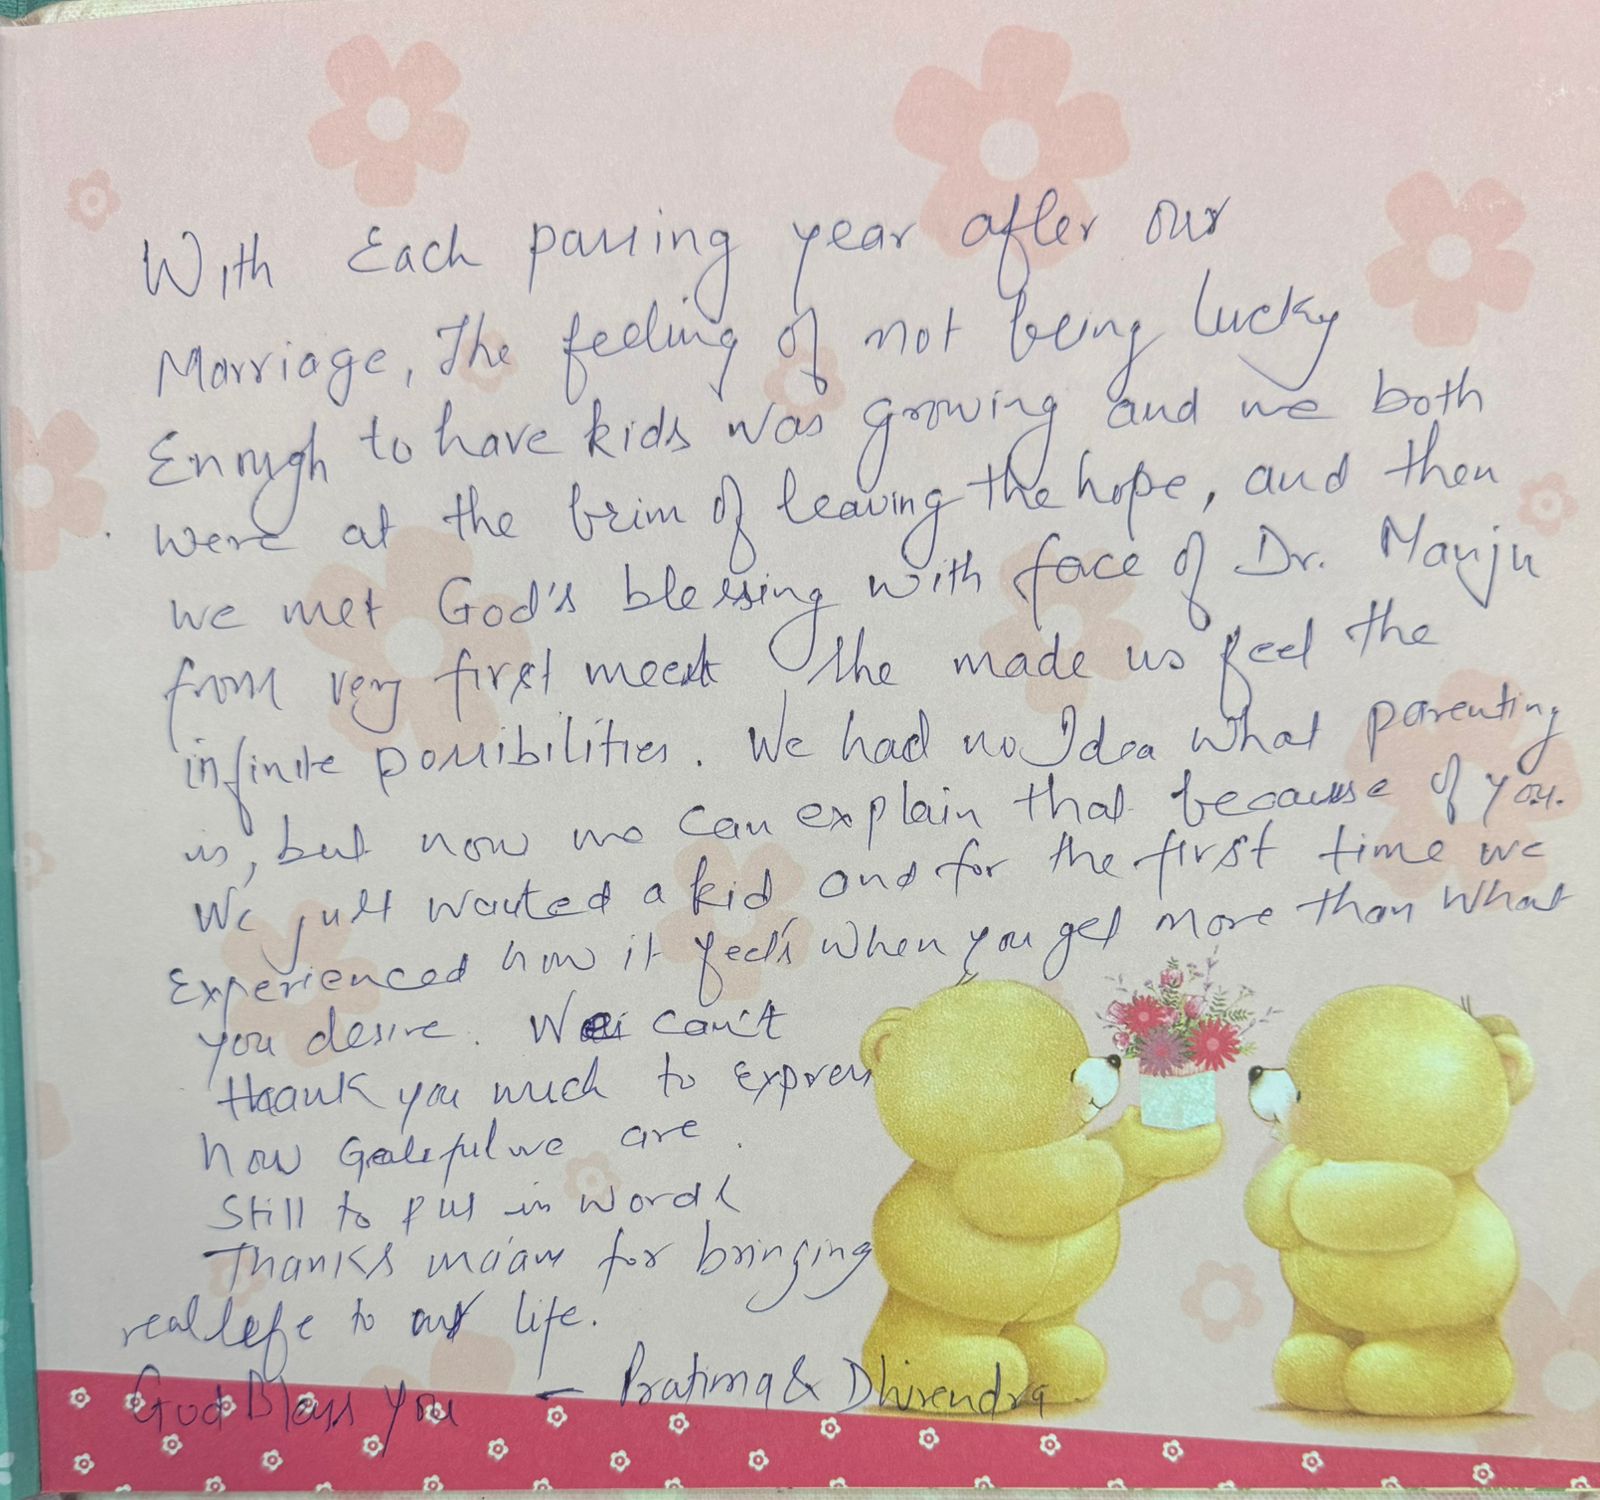 With Each passing year after our
Marriage, The feeling of not being lucky
Enough to have kids was growing and we both
were at the brim of leaving the hope, and then
we met God's blessing with face of Dr. Manju
from very first meet she made us feel the
infinite possibilities. We had no Idea what parenting
is, but now we can explain that because of you.
We just wanted a kid and for the first time we
Experienced how it feels when you get more than what
you desire. We can't
thank you much to express
how Gratefulwe are.
Still to put in words
Thanks ma'am for bringing
real life to our life.
God Bless you - Pratima & Dhirendra